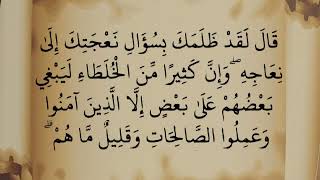 قَالَ لَقَدْ ظَلَمَكَ بِسُؤَالِ نَعْجَتِكَ إِلَىٰ
نِعَاجِهِ ۖ وَإِنَّ كَثِيرًا مِّنَ الْخُلَطَاءِ لَيَبْغِي
بَعْضُهُمْ عَلَىٰ بَعْضٍ إِلَّا الَّذِينَ آمَنُوا
وَعَمِلُوا الصَّالِحَاتِ وَقَلِيلٌ مَّا هُمْ ۗ